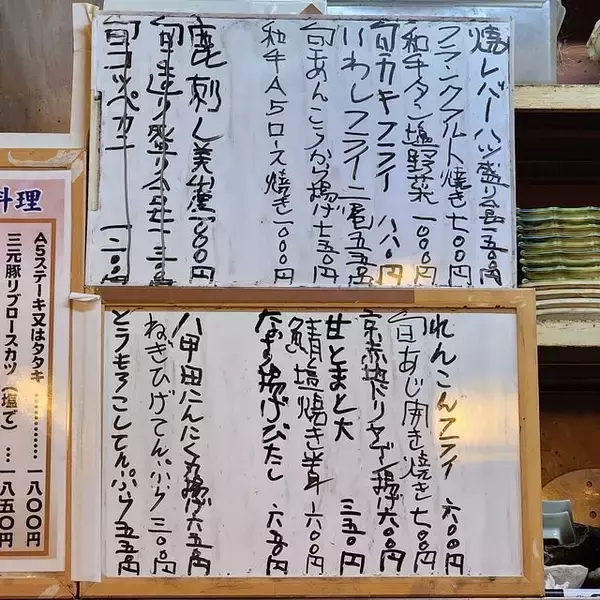 焼レバーハツ盛り合 一五〇円
フランクフルト焼き 七〇〇円
和牛タン塩野菜 一〇〇〇円
旬カキフライ 八八〇円
いわしフライ 二尾 五五〇円
旬あんこうから揚げ 七五〇円
和牛A5ロース焼き 一〇〇〇円
鹿刺し 一〇〇〇円
旬 盛り合
旬コッペカニ 一二〇〇円
れんこんフライ 六〇〇円
旬あじ開き焼き 七〇〇円
揚げ 六〇〇円
甘とまと大 三五〇円
鯖塩焼き半身 六〇〇円
なす揚げびたし 六五〇円
八甲田にんにく丸揚げ 六五〇円
ねぎひげてんぷら 三〇〇円
とうもろこしてんぷら 五五〇円
料理
A5ステーキ又はタタキ …… 一八〇〇円
三元豚リブロースカツ（塩で） … 一八五〇円